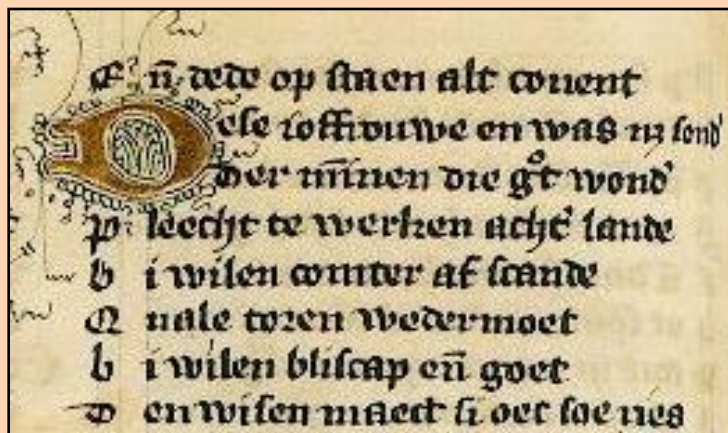 En̄ dede op staen alt couent
Dese ioffrouwe en was nȝ sond'
Der minnen die gͦt wond'
pleecht te werken acht' lande
bi wilen comter af scande
Quale toren wedermoet
bi wilen bliscap en̄ goet
Den wisen maect si oec soe ries